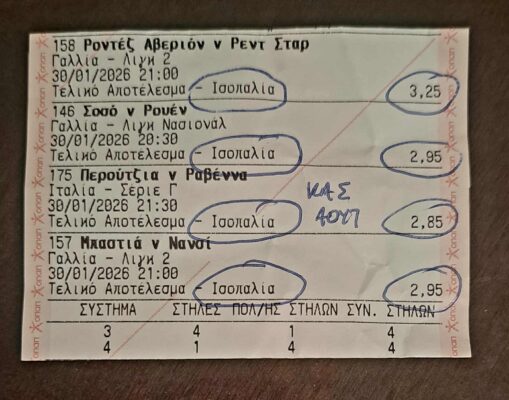 158 Ροντέζ Αβεριόν v Ρεντ Σταρ
Γαλλία - Λιγκ 2
30/01/2026 21:00
Τελικό Αποτέλεσμα - Ισοπαλία 3,25
146 Σοσό v Ρουέν
Γαλλία - Λιγκ Νασιονάλ
30/01/2026 20:30
Τελικό Αποτέλεσμα - Ισοπαλία 2,95
175 Περούτζια v Ραβέννα
Ιταλία - Σέριε Γ
30/01/2026 21:30
ΚΑΣ
ΑΟΥΤ
Τελικό Αποτέλεσμα - Ισοπαλία 2,85
157 Μπαστιά v Νανσί
Γαλλία - Λιγκ 2
30/01/2026 21:00
Τελικό Αποτέλεσμα - Ισοπαλία 2,95
ΣΥΣΤΗΜΑ ΣΤΗΛΕΣ ΠΟΛ/ΗΣ ΣΤΗΛΩΝ ΣΥΝ. ΣΤΗΛΩΝ
3 4 1 4
4 1 4 4